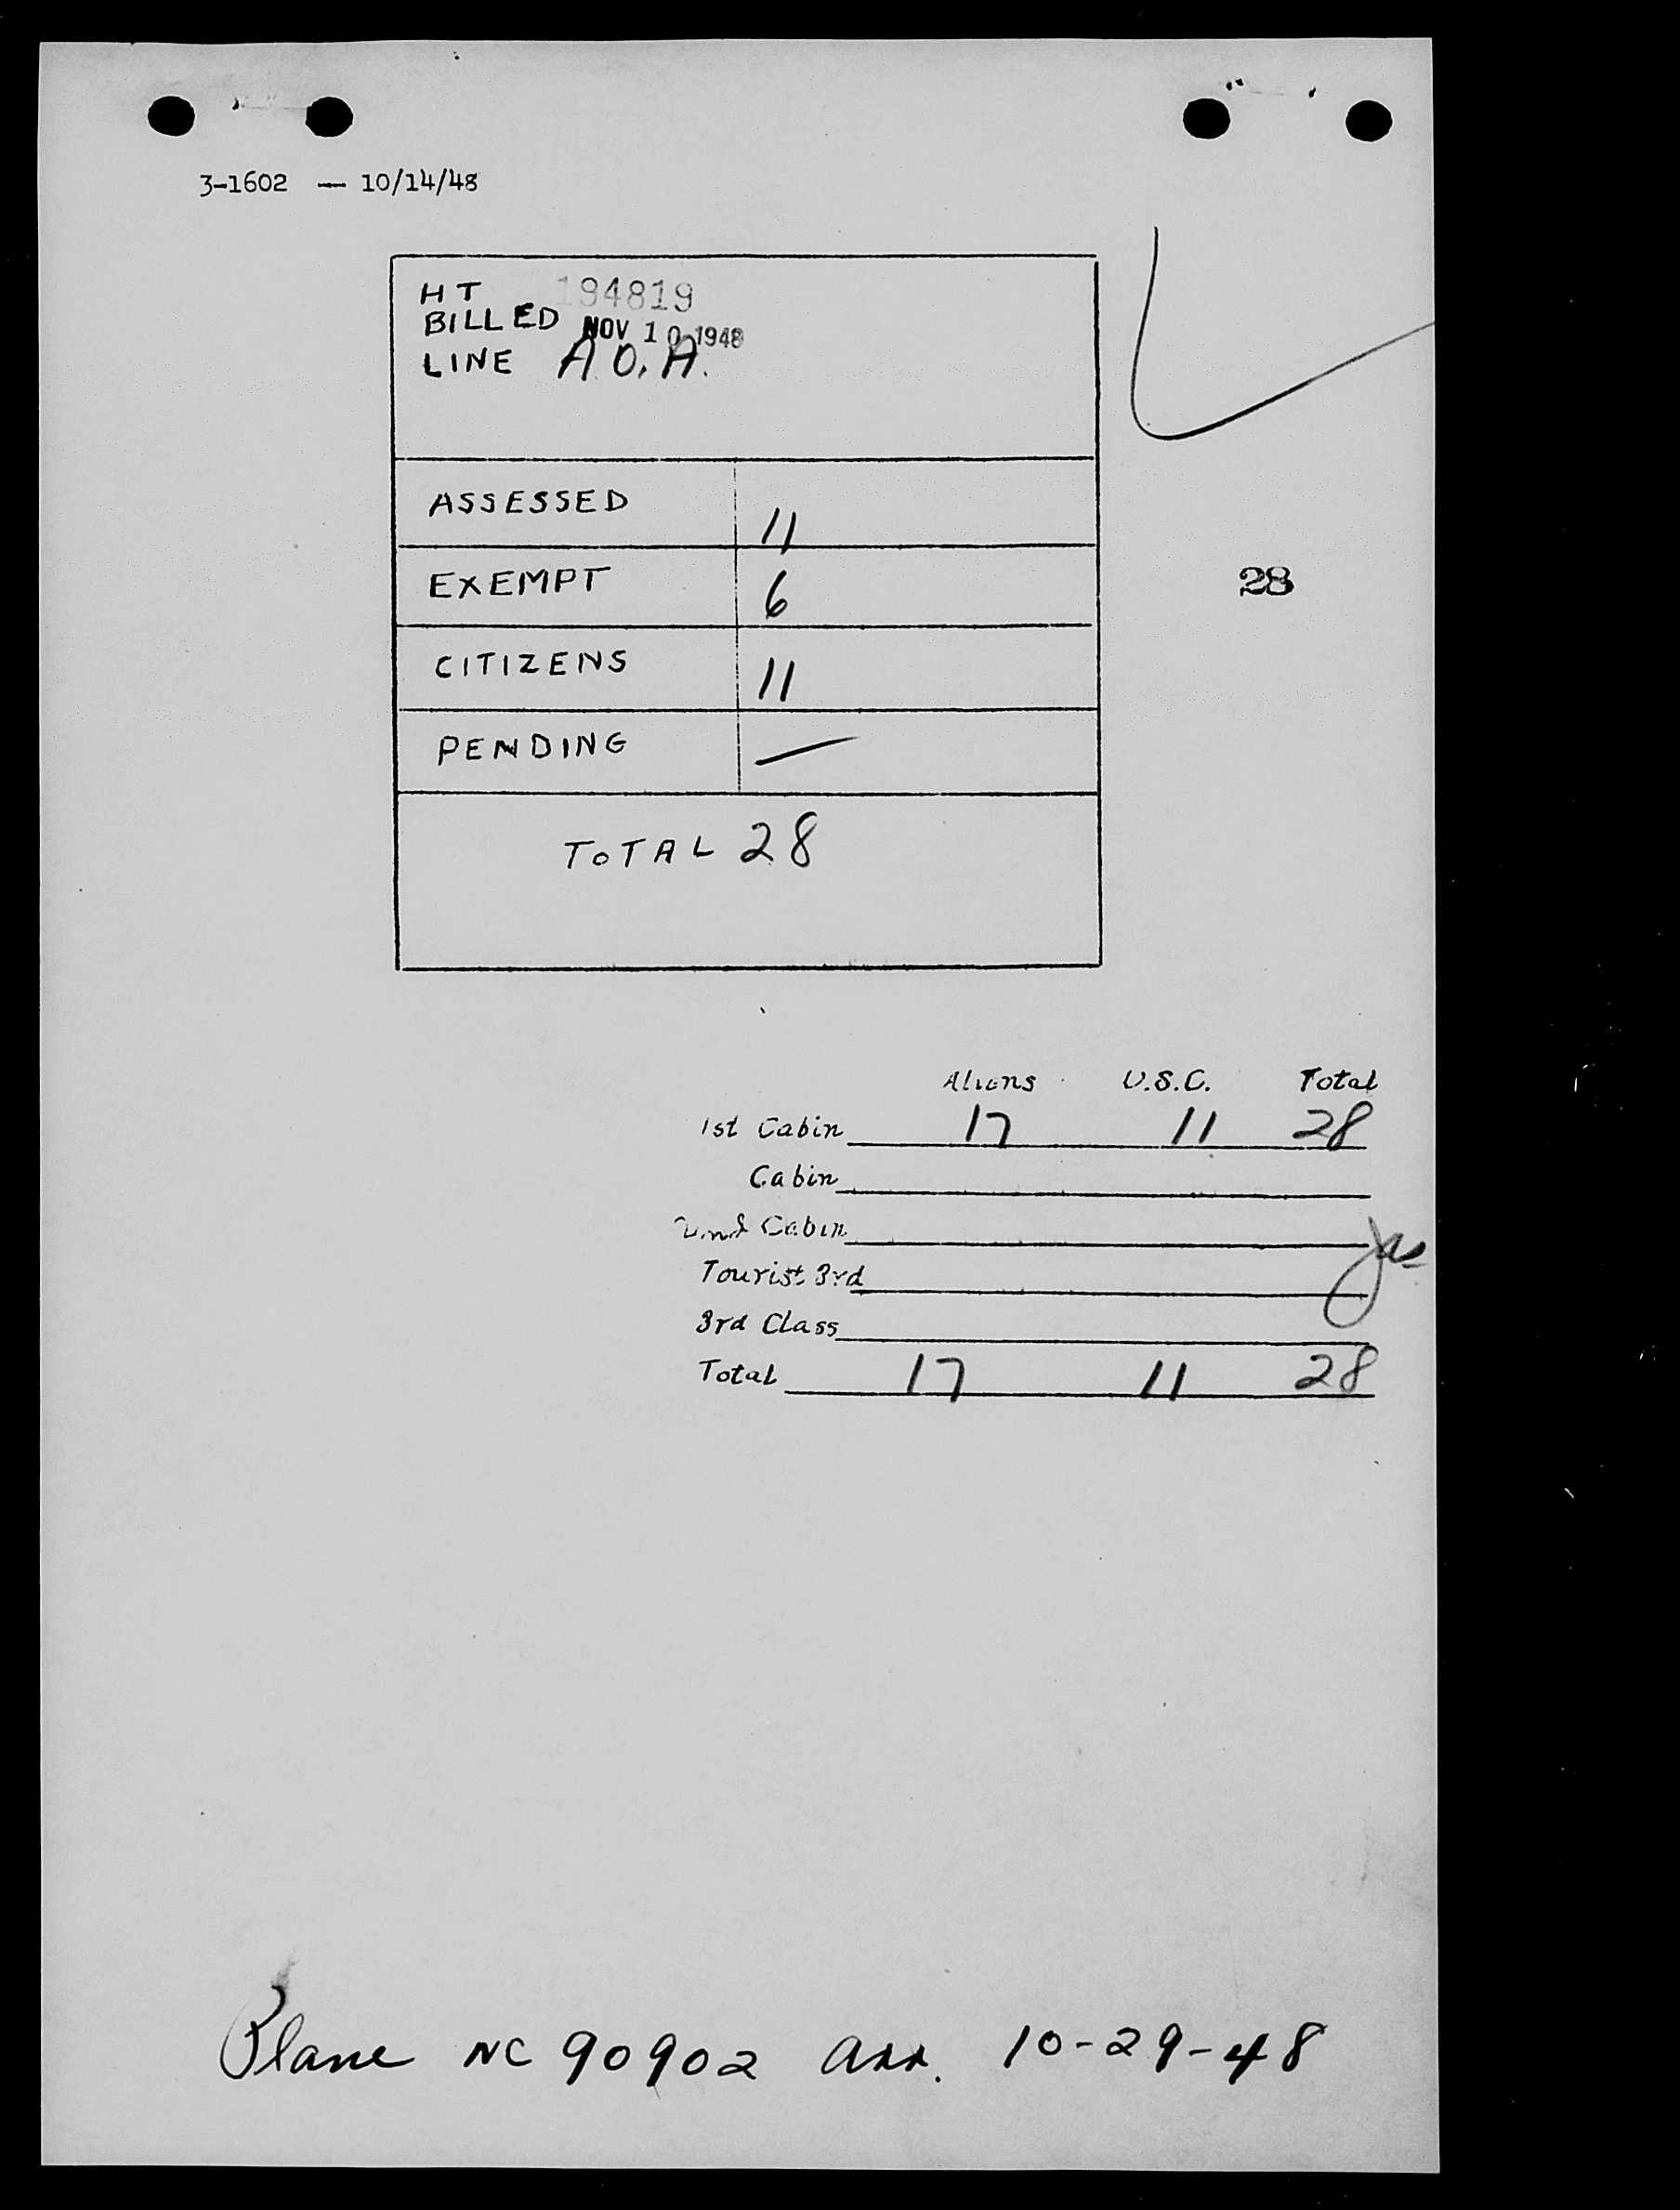 3-1602 — 10/14/48
HT 194819
BILLED NOV 10 1948
LINE A.O.A.
ASSESSED 11
EXEMPT 6
28
CITIZENS 11
PENDING —
TOTAL 28
Aliens U.S.C. Total
1st Cabin 17 11 28
Cabin
2nd Cabin
Tourist 3rd
3rd Class
Total 17 11 28
Plane NC 90902 arr. 10-29-48